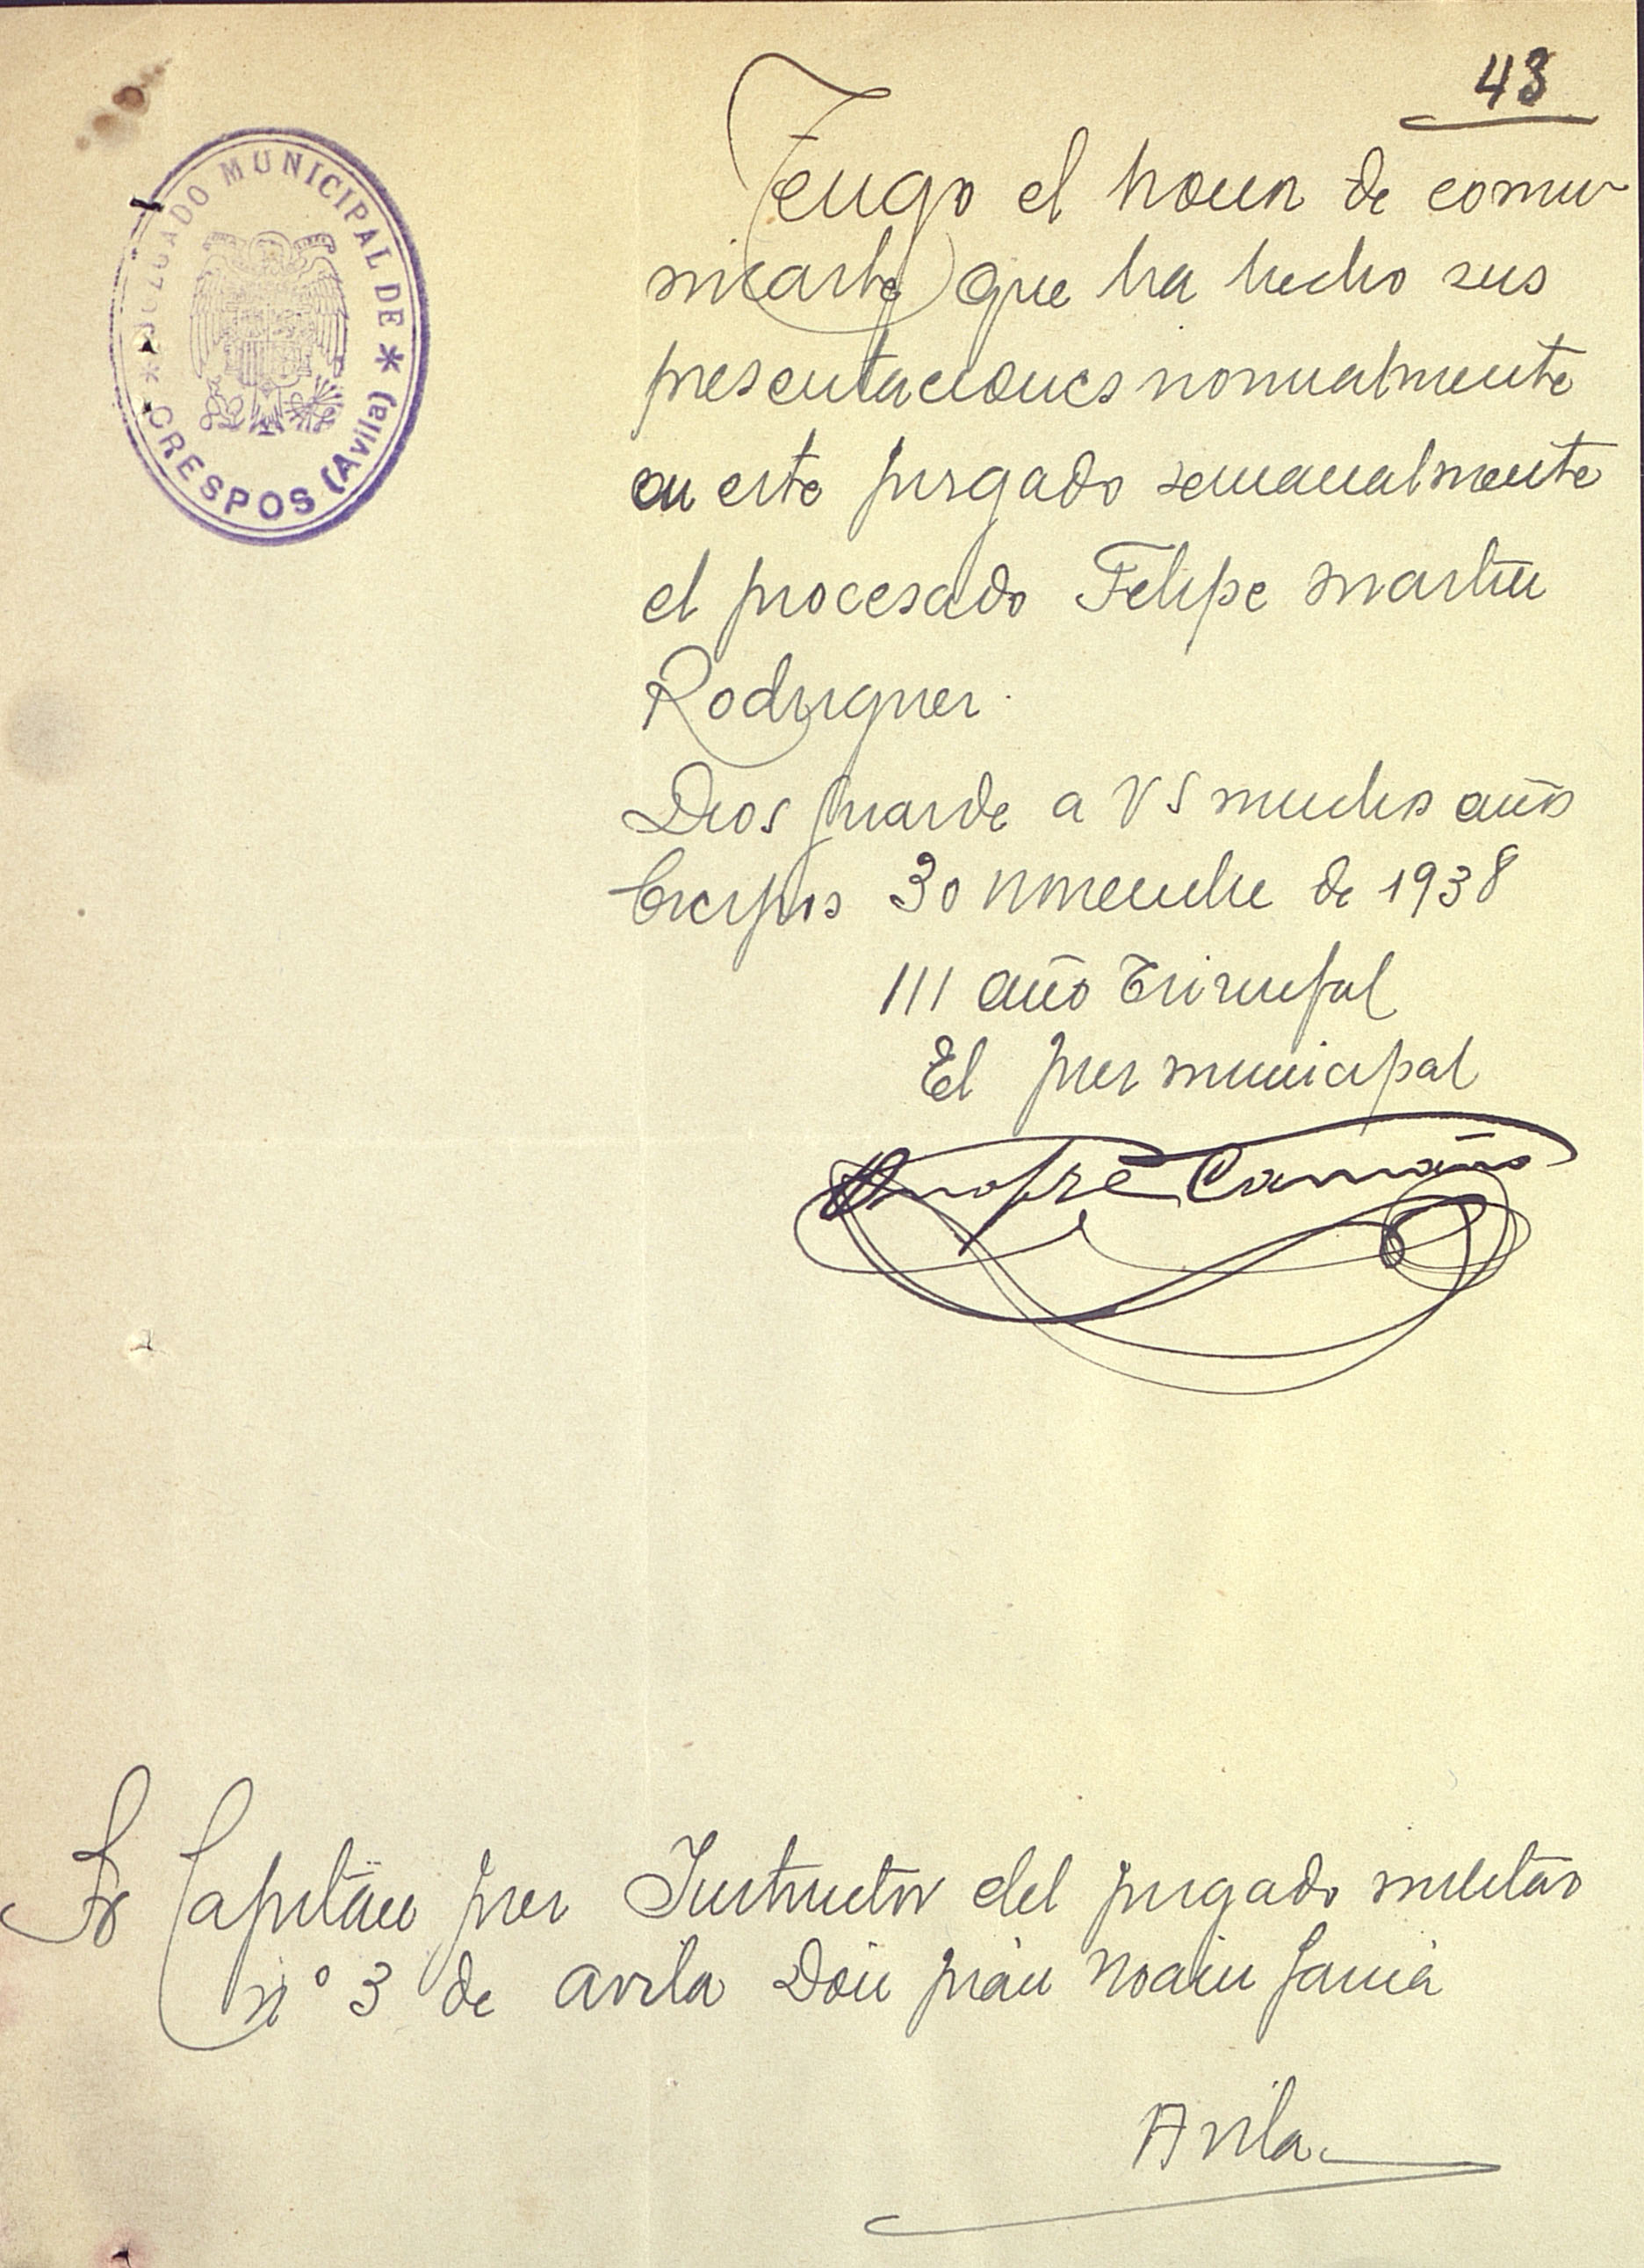 43
JUZGADO MUNICIPAL DE
* CRESPOS (Avila) *
Tengo el honor de comu-
nicarle que ha hecho sus
presentaciones normalmente
en este juzgado semanalmente
el procesado Felipe Martin
Rodriguez.
Dios guarde a VS muchos años
Crespos 30 noviembre de 1938
III año Triunfal
El juez municipal
Onofre Camaño
Sr Capitán juez Instructor del juzgado militar
nº 3 de avila Don juan Noain Garcia
Avila